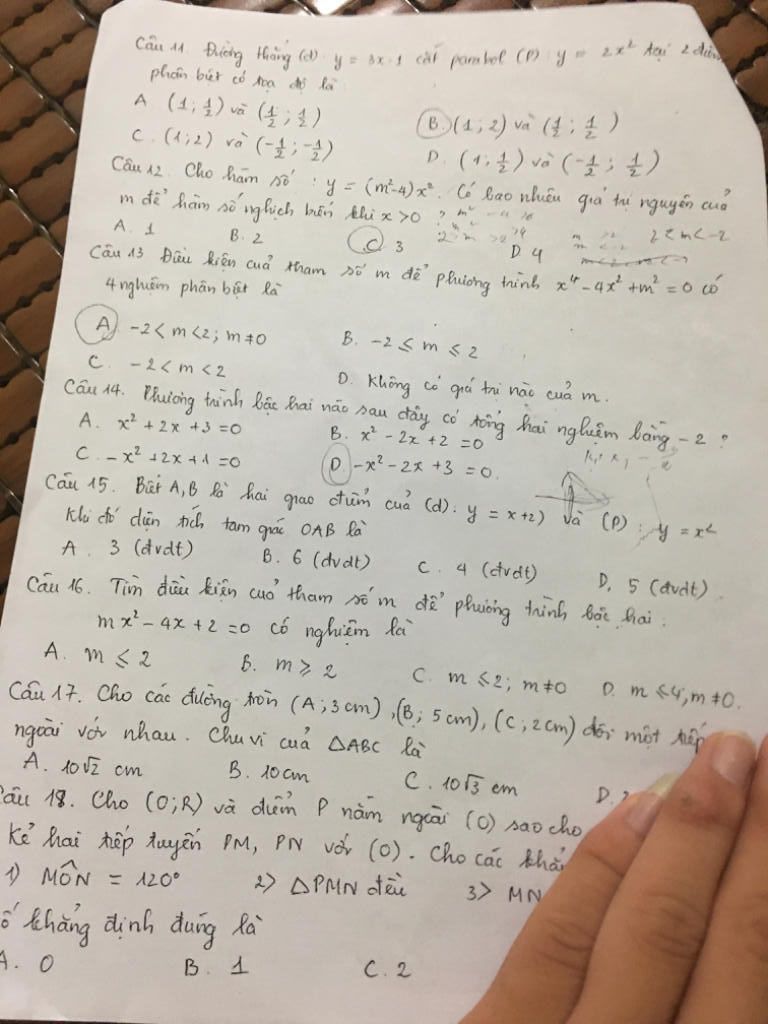 Câu 11. Đường thẳng (d): y = 3x-1 cắt parabol (P): y = 2x² tại 2 điểm
phân biệt có toạ độ là
A (1; 1/2) và (1/2; 1/2) B. (1; 2) và (1/2; 1/2)
C. (1; 2) và (-1/2; -1/2) D. (1; 1/2) và (-1/2; 1/2)
Câu 12. Cho hàm số: y = (m²-4)x². Có bao nhiêu giá trị nguyên của
m để hàm số nghịch biến khi x > 0 ?
A. 1 B. 2 C 3 D 4
2 < m < -2
Câu 13 Điều kiện của tham số m để phương trình x⁴ - 4x² + m² = 0 có
4 nghiệm phân biệt là
A -2 < m < 2; m ≠ 0 B. -2 ≤ m ≤ 2
C. -2 < m < 2 D. Không có giá trị nào của m.
Câu 14. Phương trình bậc hai nào sau đây có tổng hai nghiệm bằng -2 ?
A. x² + 2x + 3 = 0 B. x² - 2x + 2 = 0
C. -x² + 2x + 1 = 0 D. -x² - 2x + 3 = 0.
Câu 15. Biết A, B là hai giao điểm của (d): y = x+2) và (P): y = x²
Khi đó diện tích tam giác OAB là
A. 3 (đvdt) B. 6 (đvdt) C. 4 (đvdt) D. 5 (đvdt).
Câu 16. Tìm điều kiện của tham số m để phương trình bậc hai:
mx² - 4x + 2 = 0 có nghiệm là
A. m ≤ 2 B. m ≥ 2 C. m ≤ 2; m ≠ 0 D. m ≤ 4, m ≠ 0.
Câu 17. Cho các đường tròn (A; 3cm), (B; 5cm), (C; 2cm) đôi một tiếp
ngoài với nhau. Chu vi của ΔABC là
A. 10√2 cm B. 10cm C. 10√3 cm D.
Câu 18. Cho (O; R) và điểm P nằm ngoài (O) sao cho
Kẻ hai tiếp tuyến PM, PN với (O). Cho các
1) MÔN = 120° 2> ΔPMN đều 3> MN
khẳng định đúng là
A. 0 B. 1 C. 2